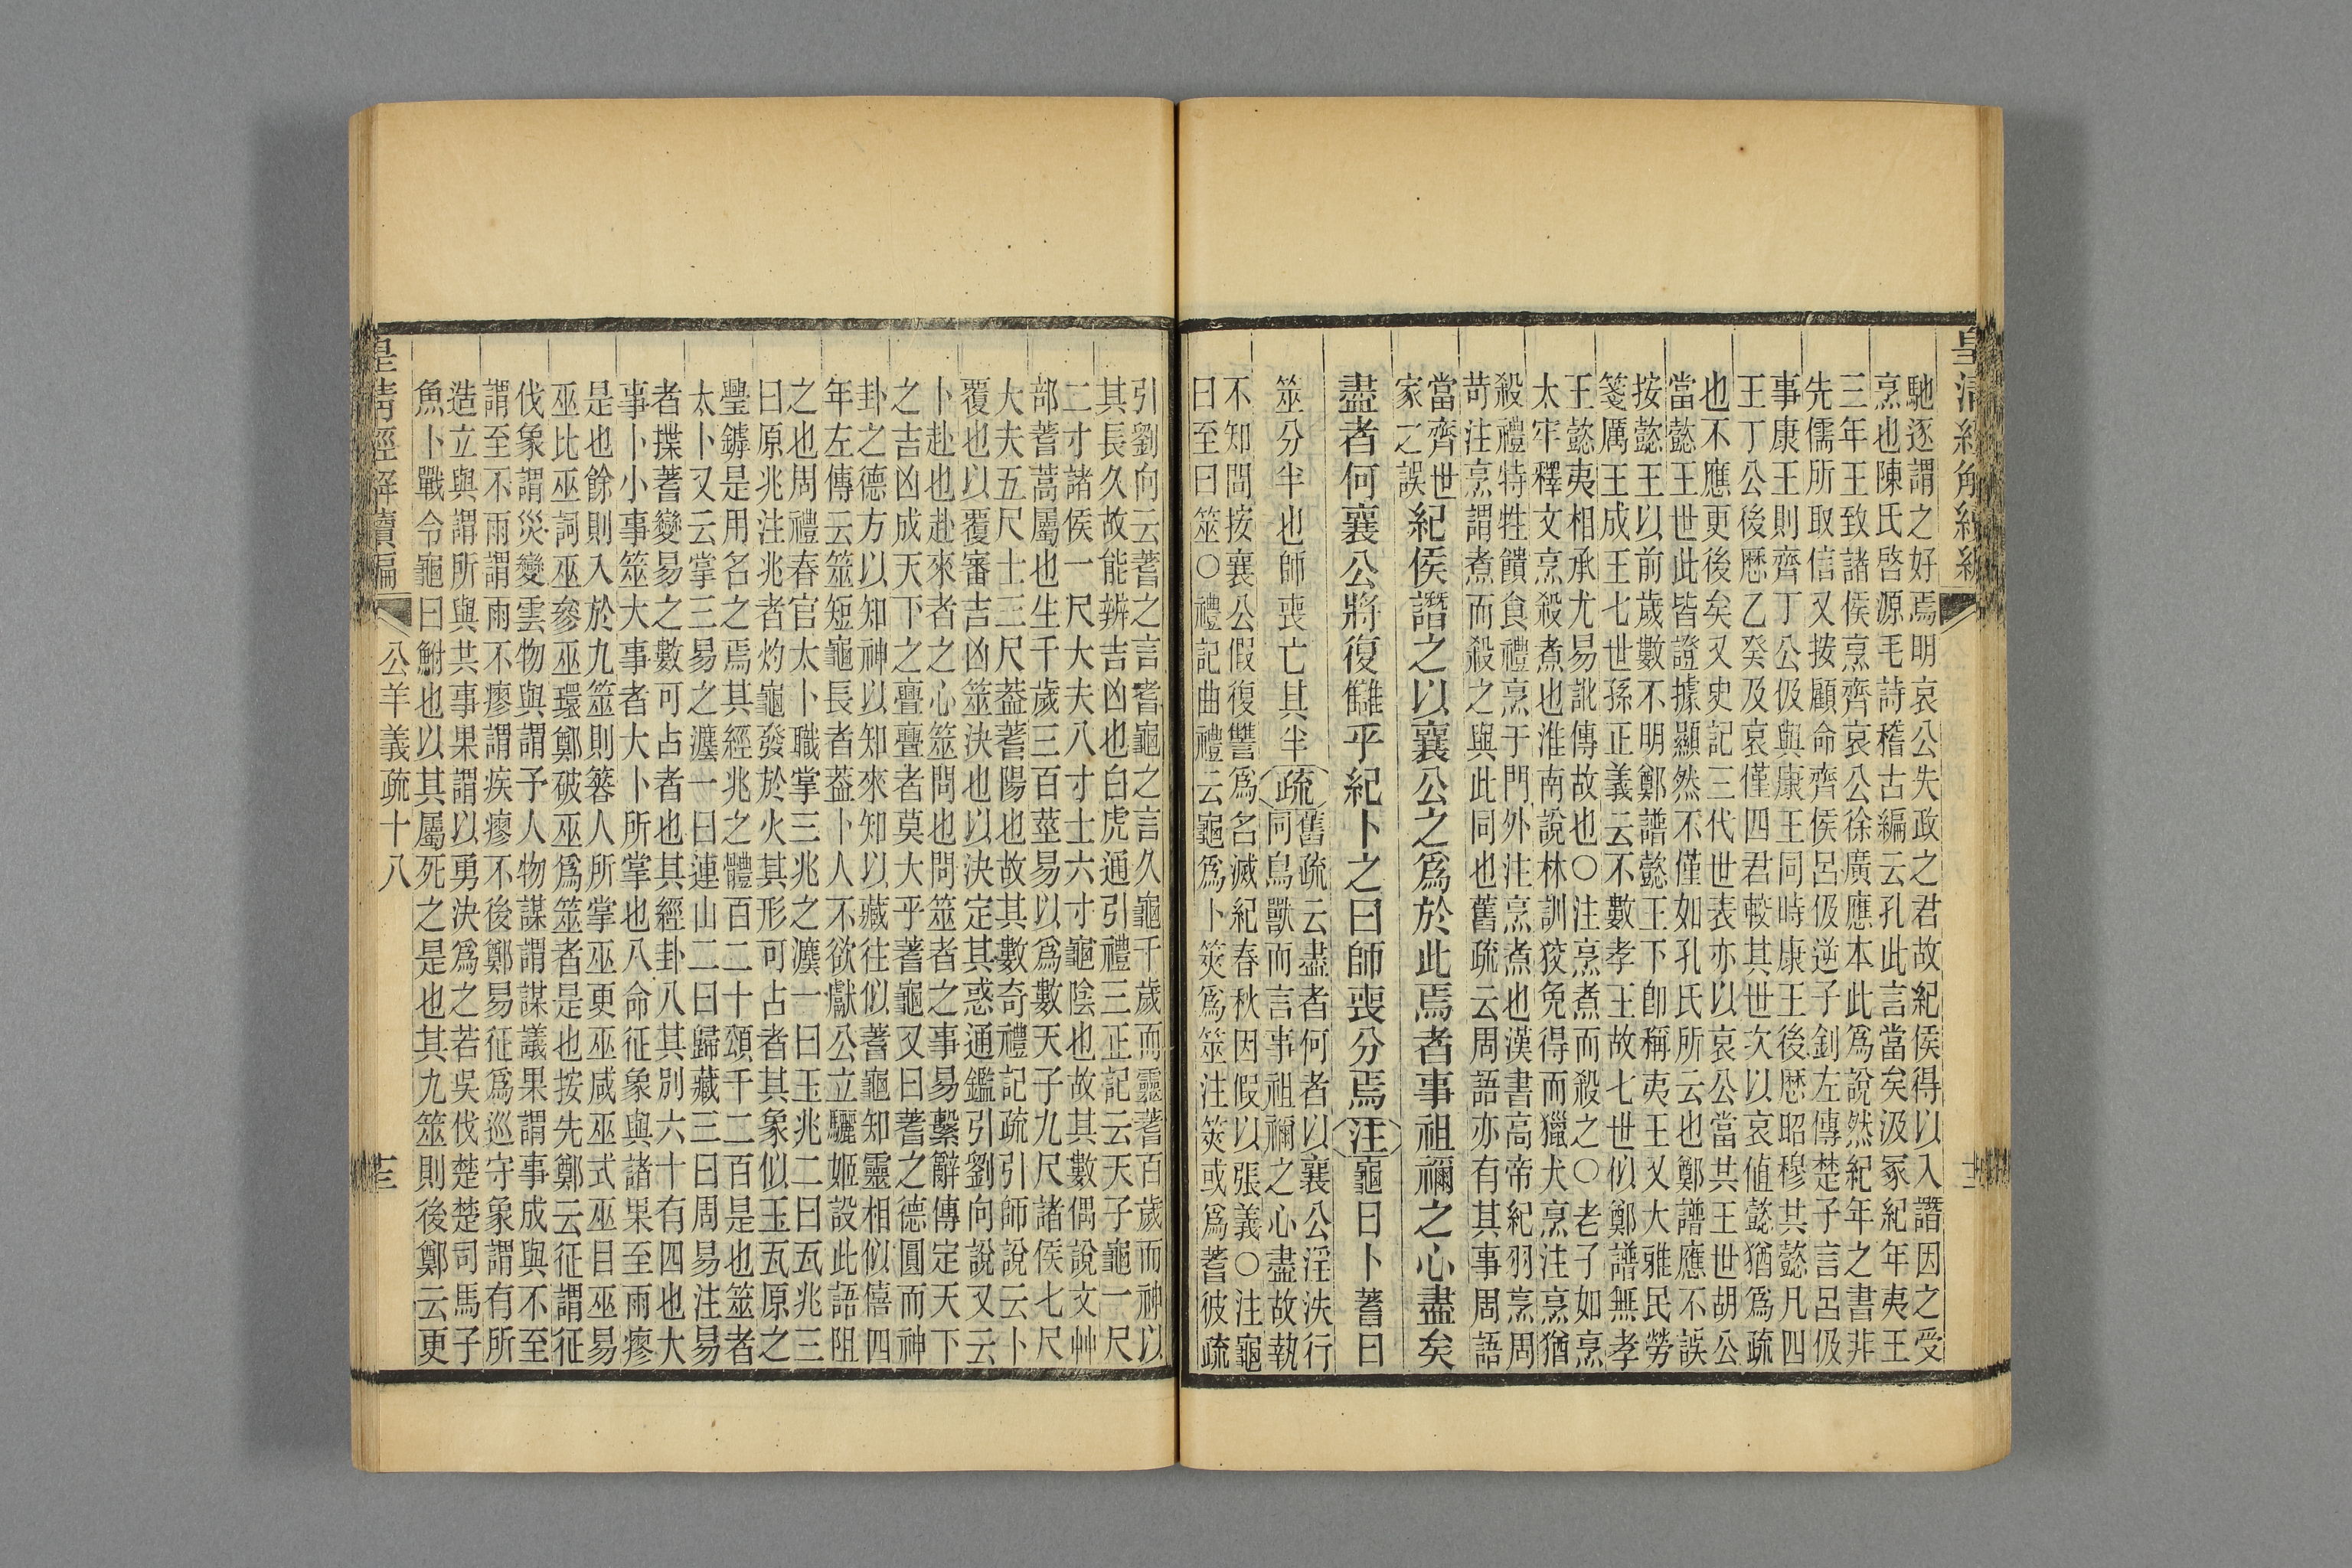 皇清經解續編
馳逐謂之好焉明哀公失政之君故紀侯得以入譖因之受
烹也陳氏啓源毛詩稽古編云孔此言當矣汲冢紀年夷王
三年王致諸侯烹齊哀公徐廣應本此爲說然紀年之書非
先儒所取信又按顧命齊侯呂伋逆子釗左傳楚子言呂伋
事康王則齊丁公伋與康王同時康王後歷昭穆共懿凡四
王丁公後歷乙癸及哀僅四君較其世次以哀值懿猶爲疏
也不應更後矣又史記三代世表亦以哀公當共王世胡公
當懿王世此皆證據顯然不僅如孔氏所云也鄭譜應不誤
按懿王以前歲數不明鄭譜懿王下卽稱夷王又大雅民勞
箋厲王成王七世孫正義云不數孝王故七世似鄭譜無孝
王懿夷相承尤易訛傳故也〇注烹煮而殺之〇老子如烹
太牢釋文烹殺煮也淮南說林訓狡兔得而獵犬烹注烹猶
殺禮特牲饋食禮烹于門外注烹煮也漢書高帝紀羽烹周
苛注烹謂煮而殺之與此同也舊疏云周語亦有其事周語
當齊世
家之誤
紀侯譖之以襄公之爲於此焉者事祖禰之心盡矣
盡者何襄公將復讎乎紀卜之曰師喪分焉注龜曰卜蓍曰
筮分半也師喪亡其半疏舊疏云盡者何者以襄公淫泆行
同鳥獸而言事祖禰之心盡故執
不知問按襄公假復讐爲名滅紀春秋因假以張義〇注龜
曰至曰筮〇禮記曲禮云龜爲卜筴爲筮注筴或爲蓍彼疏
引劉向云蓍之言耆龜之言久龜千歲而靈蓍百歲而神以
其長久故能辨吉凶也白虎通引禮三正記云天子龜一尺
二寸諸侯一尺大夫八寸士六寸龜陰也故其數偶說文艸
部蓍蒿屬也生千歲三百莖易以爲數天子九尺諸侯七尺
大夫五尺士三尺蓋蓍陽也故其數奇禮記疏引師說云卜
覆也以覆審吉凶筮決也以決定其惑通鑑引劉向說又云
卜赴也赴來者之心筮問也問筮者之事易繫辭傳定天下
之吉凶成天下之亹亹者莫大乎蓍龜又曰蓍之德圓而神
卦之德方以知神以知來知以藏往似蓍龜知靈相似僖四
年左傳云筮短龜長者蓋卜人不欲獻公立驪姬設此語阻
之也周禮春官太卜職掌三兆之灋一曰玉兆二曰瓦兆三
曰原兆注兆者灼龜發於火其形可占者其象似玉瓦原之
璺罅是用名之焉其經兆之體百二十頌千二百是也筮者
太卜又云掌三易之灋一曰連山二曰歸藏三曰周易注易
者揲蓍變易之數可占者也其經卦八其別六十有四也大
事卜小事筮大事者大卜所掌也八命征象與諸果至雨瘳
是也餘則入於九筮則簭人所掌巫更巫咸巫式巫目巫易
巫比巫詞巫參巫環鄭破巫爲筮者是也按先鄭云征謂征
伐象謂災變雲物與謂予人物謀謂謀議果謂事成與不至
謂至不雨謂雨不瘳謂疾瘳不後鄭易征爲巡守象謂有所
造立與謂所與共事果謂以勇決爲之若吳伐楚楚司馬子
魚卜戰令龜曰鮒也以其屬死之是也其九筮則後鄭云更
皇清經解續編
公羊義疏十八